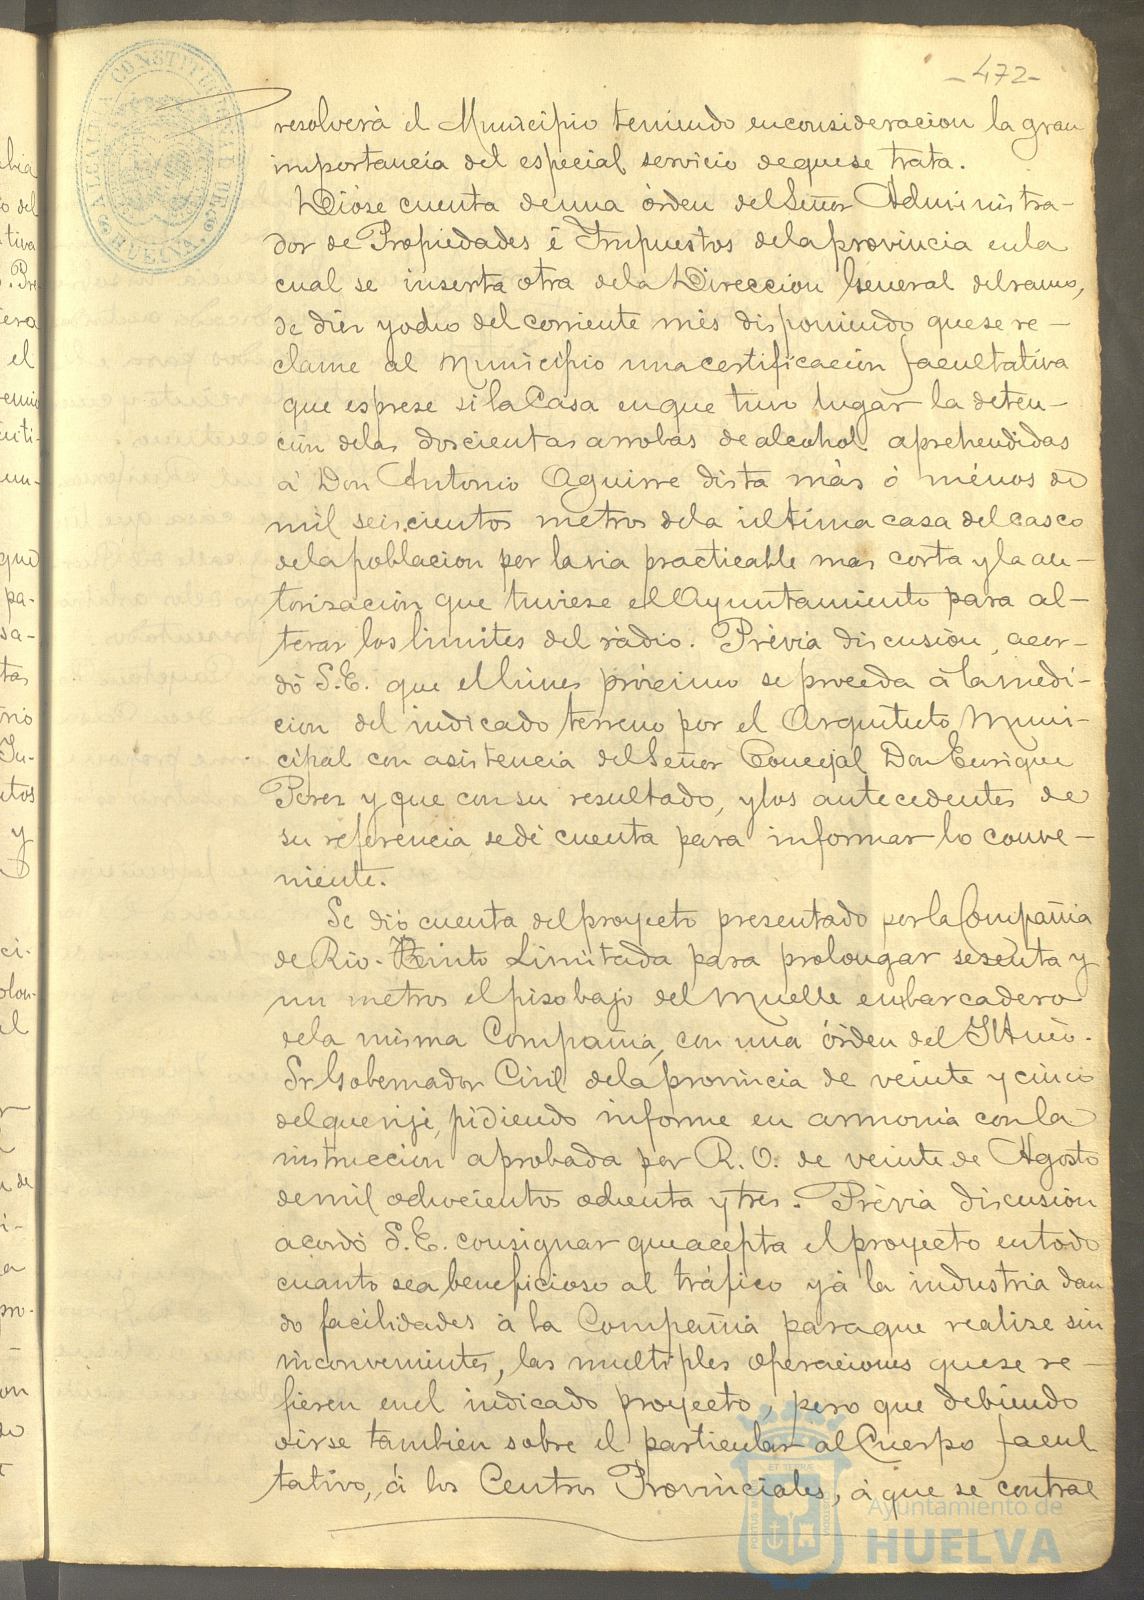 -472-
ALCALDIA CONSTITUCIONAL DE HUELVA.
resolverá el Municipio teniendo en consideracion la gran
importancia del especial servicio de que se trata.
Dióse cuenta de una órden del Señor Administra-
dor de Propiedades é Impuestos de la provincia en la
cual se inserta otra de la Direccion General del ramo,
de diez y ocho del corriente més disponiendo que se re-
clame al Municipio una certificación facultativa
que esprese si la Casa en que tuvo lugar la deten-
ción de las doscientas arrobas de alcohol aprehendidas
á Don Antonio Aguirre dista más ó ménos de
mil seiscientos metros de la última casa del casco
de la poblacion por la via practicable mas corta y la au-
torización que tuviese el Ayuntamiento para al-
terar los limites del rádio. Prévia discusión, acor-
dó S.E. que el lúnes próximo se proceda á la medi-
cion del indicado terreno por el Arquitecto Muni-
cipal con asistencia del Señor Concejal Don Enrique
Perez y que con su resultado, y los antecedentes de
su referencia se dé cuenta para informar lo conve-
niente.
Se dió cuenta del proyecto presentado por la Compañia
de Rio-Tinto Limitada para prolongar sesenta y
un metros el piso bajo del Muelle embarcadero
de la misma Compañia, con una órden del Iltmo.
Sr Gobernador Civil de la provincia de veinte y cinco
del que rije, pidiendo informe en armonia con la
instruccion aprobada por R. O. de veinte de Agosto
de mil ochocientos ochenta y tres. Prévia discusión
acordó S.E. consignar que acepta el proyecto en todo
cuanto sea beneficioso al tráfico y á la industria dan
do facilidades á la Compañia para que realize sin
inconvenientes, las multiples operaciones que se re-
fieren en el indicado proyecto, pero que debiendo
oirse tambien sobre el particular al Cuerpo facul
tativo, á los Centros Provinciales, á que se contrae
Ayuntamiento de
HUELVA